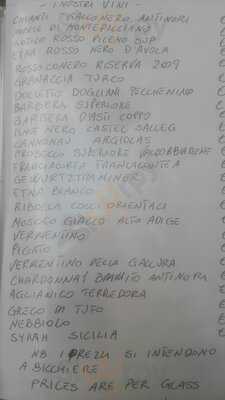 - I NOSTRI VINI -
CHIANTI TIGALLO NERO, ANTINORI
NOBILE DI MONTEPULCIANO
ANTICO ROSSO PICENO SUP
ETNA ROSSO NERO D'AVOLA
ROSSO CONERO RISERVA 2009
GRANACCIA TURCO
DOLCETTO DOGLIANI PECCHENINO
BARBERA SUPERIORE
BARBERA D'ASTI COPPO
PINOT NERO CASTEL SALLEG
CANNONAU ARGIOLAS
PROSECCO SUPERIORE VALDOBBIADENE
FRANCIACORTA
GEWURTZTRAMINER
ETNA BIANCO
RIBOLLA COLLI ORIENTALI
MOSCATO GIALLO ALTO ADIGE
VERMENTINO
PIGATO
VERMENTINO DELLA GALLURA
CHARDONNAY BRAMITO ANTINORI
AGLIANICO TERREDORA
GRECO DI TUFO
NEBBIOLO
SYRAH SICILIA
NB I PREZZI SI INTENDONO
A BICCHIERE
PRICES ARE PER GLASS